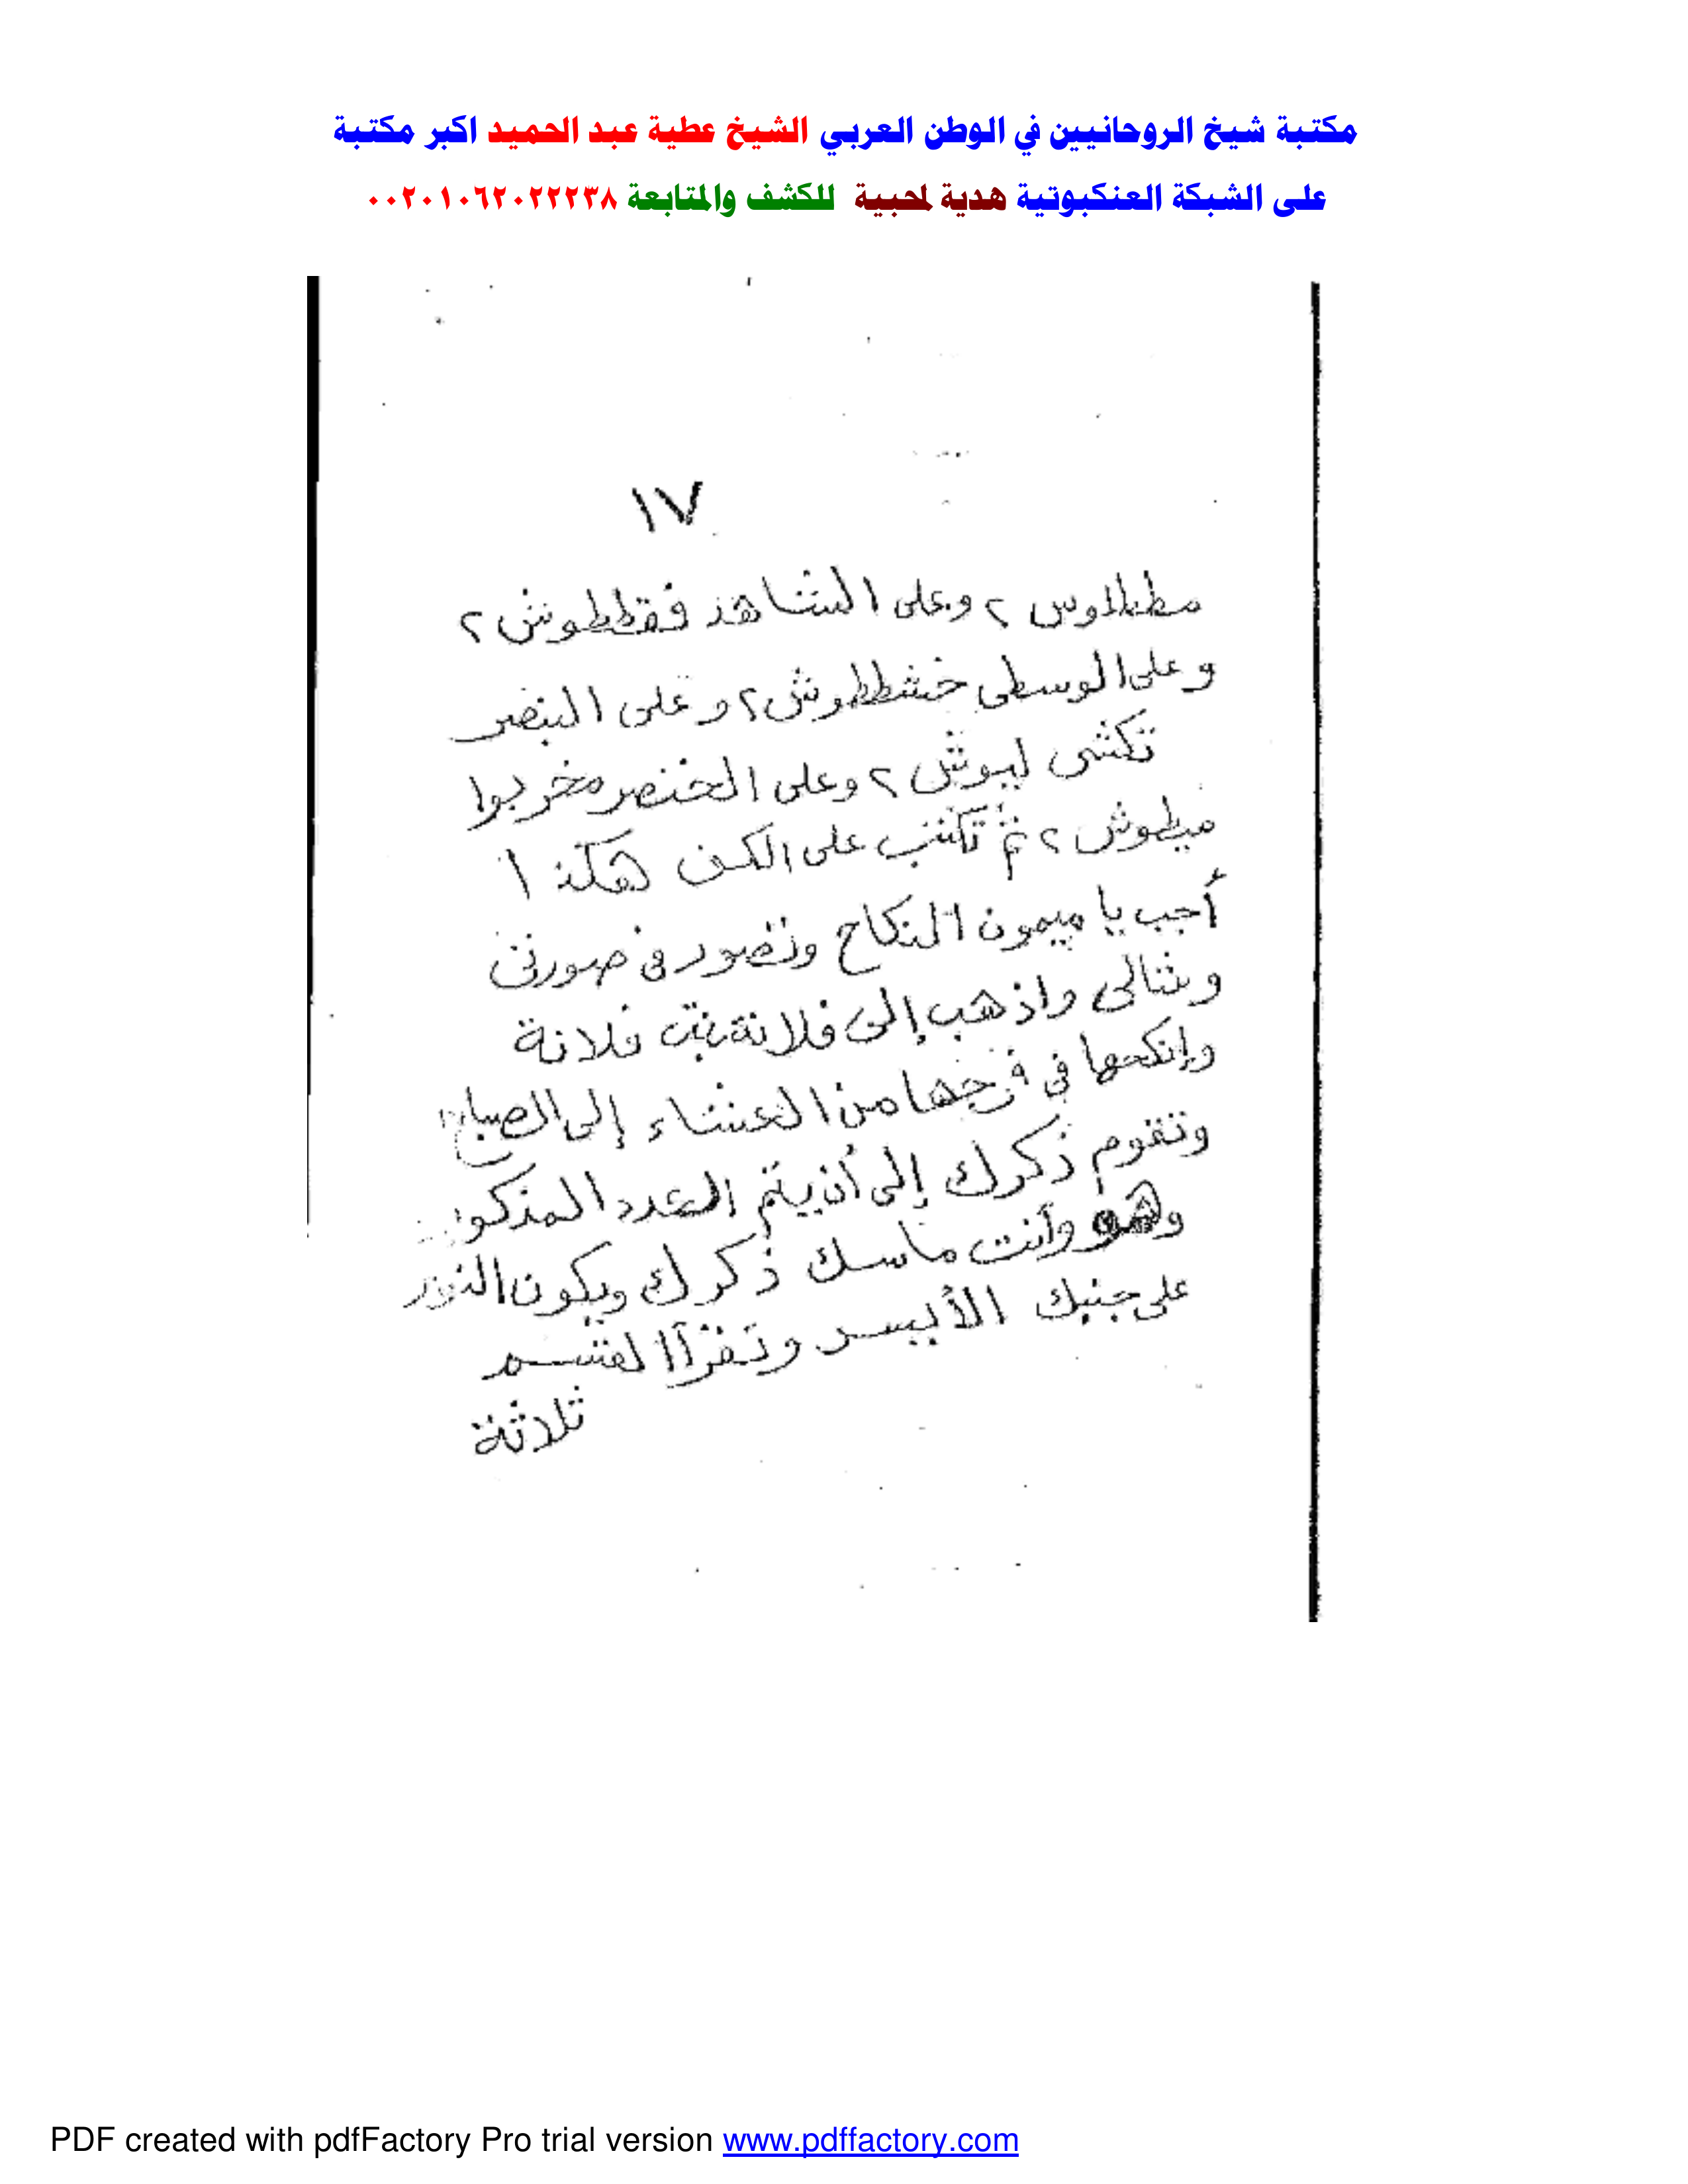 مكتبة شيخ الروحانيين في الوطن العربي الشيخ عطية عبد الحميد اكبر مكتبة
على الشبكة العنكبوتية هدية لمحبيه للكشف والمتابعة ٠٠٢٠١٠٦٢٠٢٢٢٣٨
١٧
مططلاوس ٢ وعلى الشاهد فقططوش ٢
وعلى الوسطى خشططوش ٢ وعلى البنصر
تكشى ليوش ٢ وعلى الخنصر مخربوا
ميطوش ٢ ثم تكتب على الكف هكذا
أجب يا ميمون النكاح وتصور فى صورتى
ومثالى واذهب إلى فلانة بنت فلانة
وإنكحها فى فرجها من العشاء إلى الصباح
وتقوم ذكرك إلى أن يتم العدد المذكور
وهو وأنت ماسك ذكرك ويكون النور
على جنبك الأيسر وتقرأ القسم
ثلاثة
PDF created with pdfFactory Pro trial version www.pdffactory.com